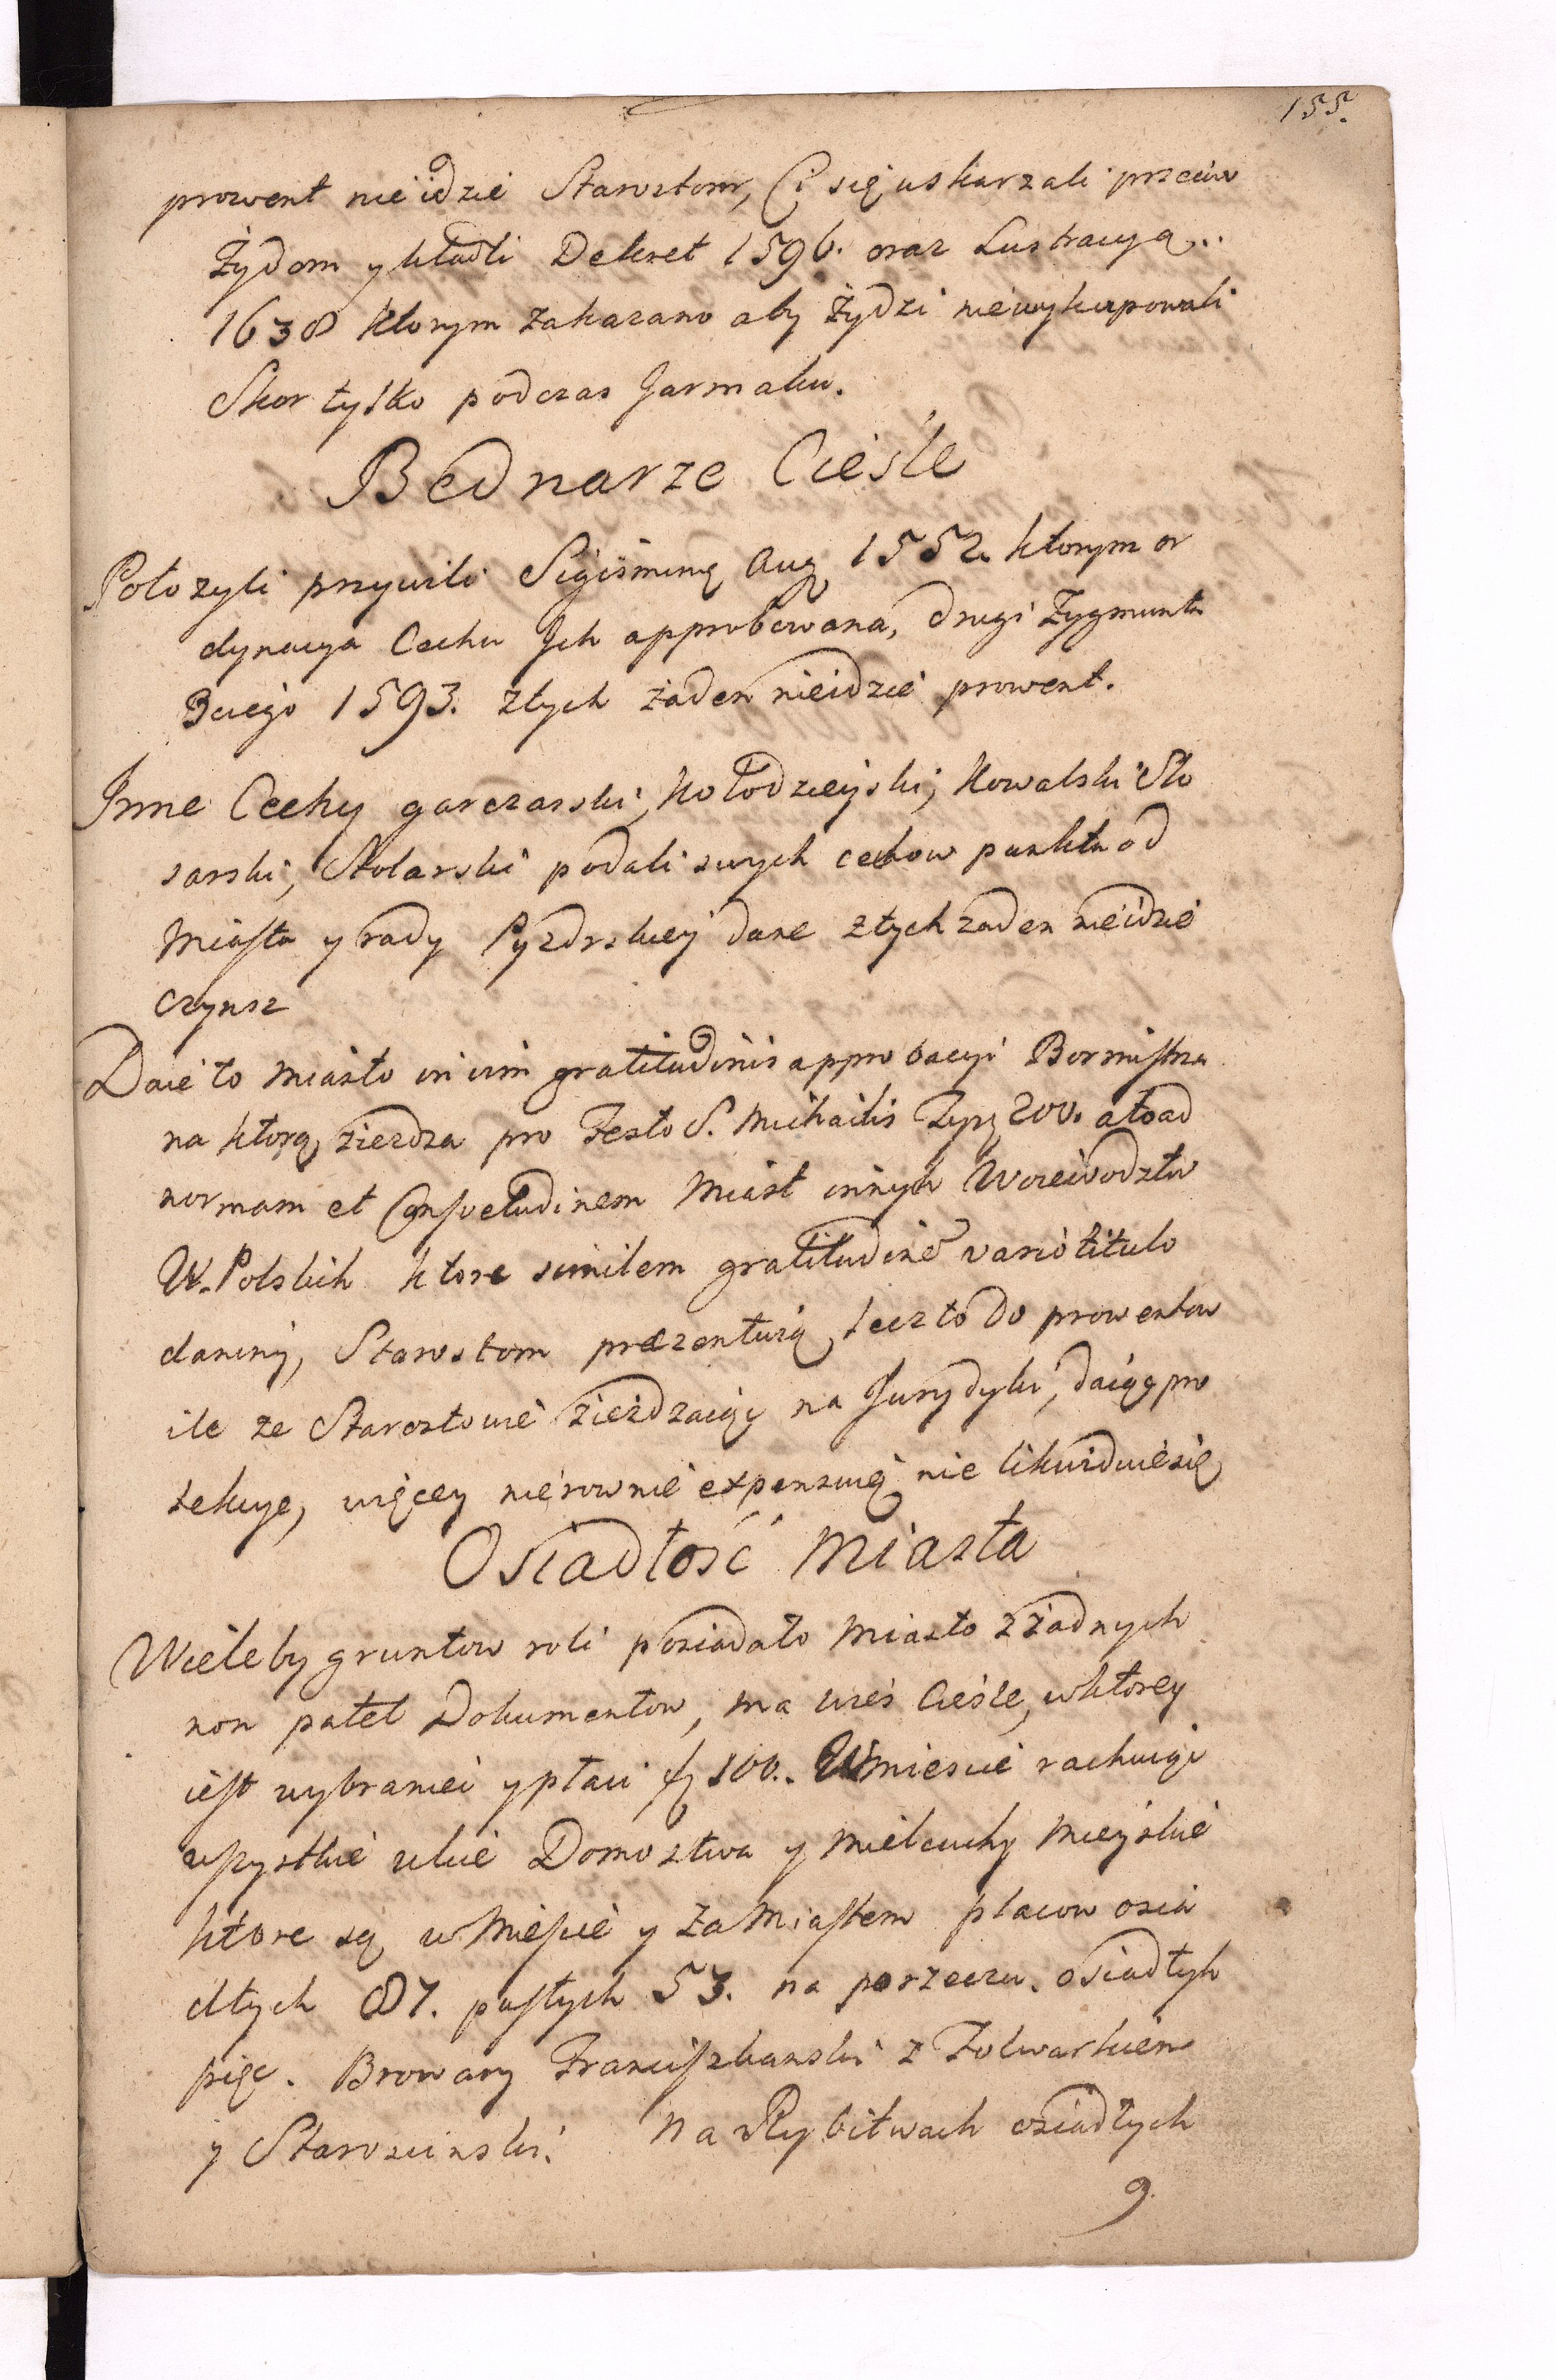 155.
prowent nieidzie Starostom, Ci się uskarzali przeciw
Żydom y kładli Dekret 1596. oraz Lustracyą..
1638 ktorym zakazano aby Żydzi niewykupowali
Skor tylko podczas Jarmaku.
Bednarze Cieśle
Położyli przywilei Sigismung Aug 1552 ktorym or
dynacya Cechu Ich approbowana, drugi Zygmunta
3ciego 1593. z tych żaden nieidzie prowent.
Inne Cechy garczarski, kołodzieyski, kowalski Slo
sarski, Stolarski podali swych cechow punkta od
Miasta y rady Pyzdrskiey dane z tych zaden nieidzie
czynsz
Daie to Miasto in vim gratitudinis approbacyi Bormistrza
na ktorą ziezdza pro Festo S. Michailis Tynf 200. a to ad
normam et Consvetudinem Miast innych Woiewodztw
W. Polskich ktore similem gratitudine vario titulo
daniny, Starostom prezentuią, lecz to do prowentow
ile ze Starostowie zieżdzaiąc na Jurydyki, daiąc pro
tekcye, więcey nierownie expensuią nie likwiduie się
Osiadłość Miasta
Wieleby gruntow roli posiadało Miasto z żadnych
non patet Dokumentow, ma wieś Cieśle, w ktorey
iest wybraniec y płaci 100.. W miescie rachuiąc
wszystkie ulice Domostwa y Mielcuchy Mieyskie
ktore są w Miescie y za Miastem placow osia
dłych 87. pustych 53. na porzeczu. osiadłych
pięc. Browary Franciszkanski z Folwarkiem
y Starościnski. Na Rybitwach osiadłych
9.